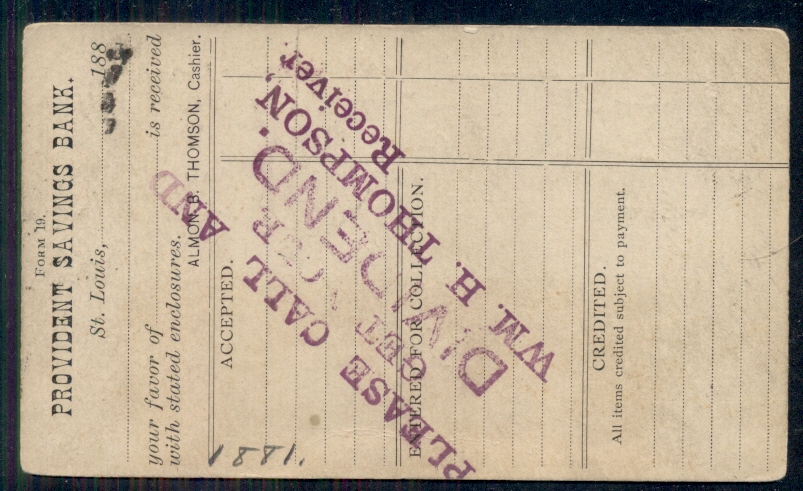 FORM 19.
PROVIDENT SAVINGS BANK.
St. Louis, 188
your favor of is received
with stated enclosures.
ALMON B. THOMSON, Cashier.
ACCEPTED.
ENTERED FOR COLLECTION.
CREDITED.
All items credited subject to payment.
1881.
PLEASE CALL AND
GET YOUR
DIVIDEND.
WM. H. THOMPSON,
Receiver.